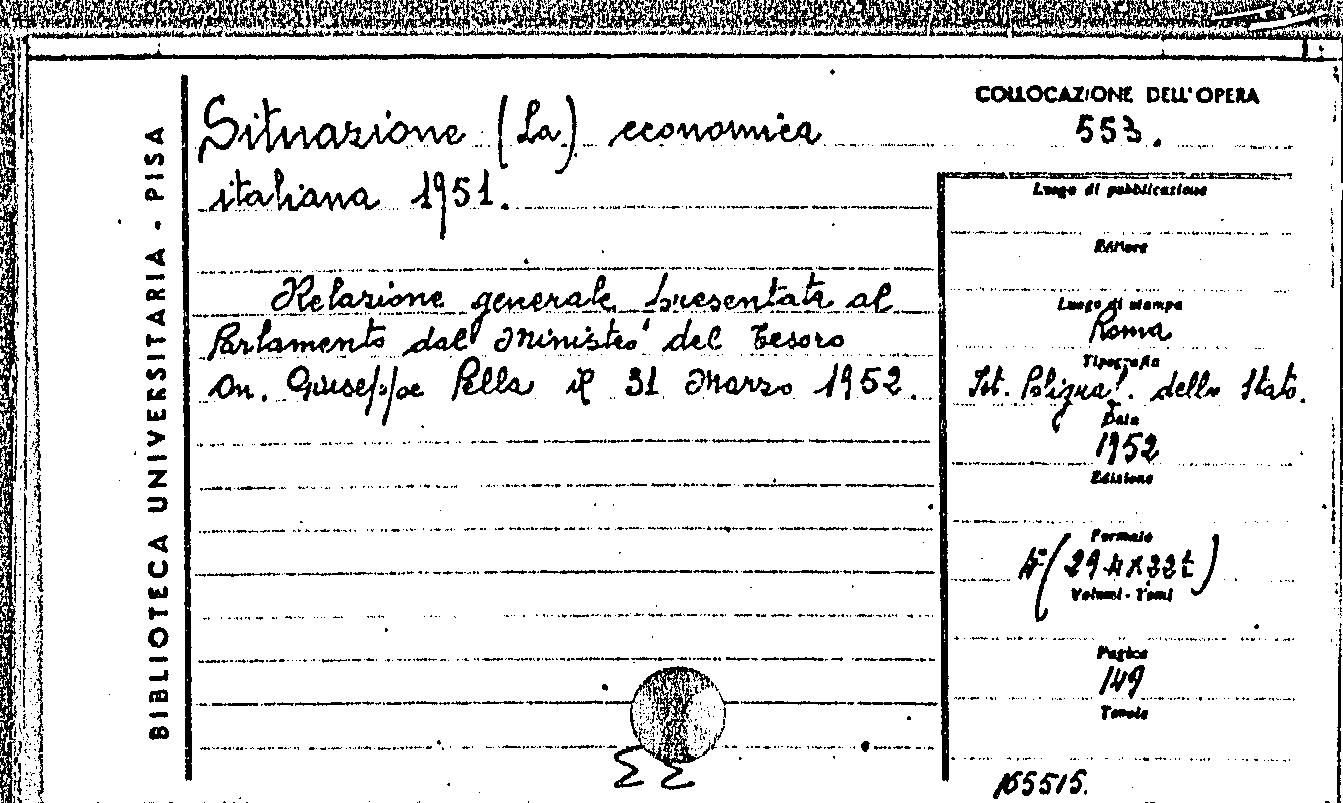 BIBLIOTECA UNIVERSITARIA - PISA
Situazione (La) economica
italiana 1951.
Relazione generale presentata al
Parlamento dal Ministro del Tesoro
On. Giuseppe Pella il 31 Marzo 1952.
COLLOCAZIONE DELL'OPERA
553.
Luogo di pubblicazione
Editore
Luogo di stampa
Roma
Tipografia
Ist. Poligraf. dello Stato.
Data
1952
Edizione
Formato
Volumi - Tomi
Pagine
149
Tavole
165515.